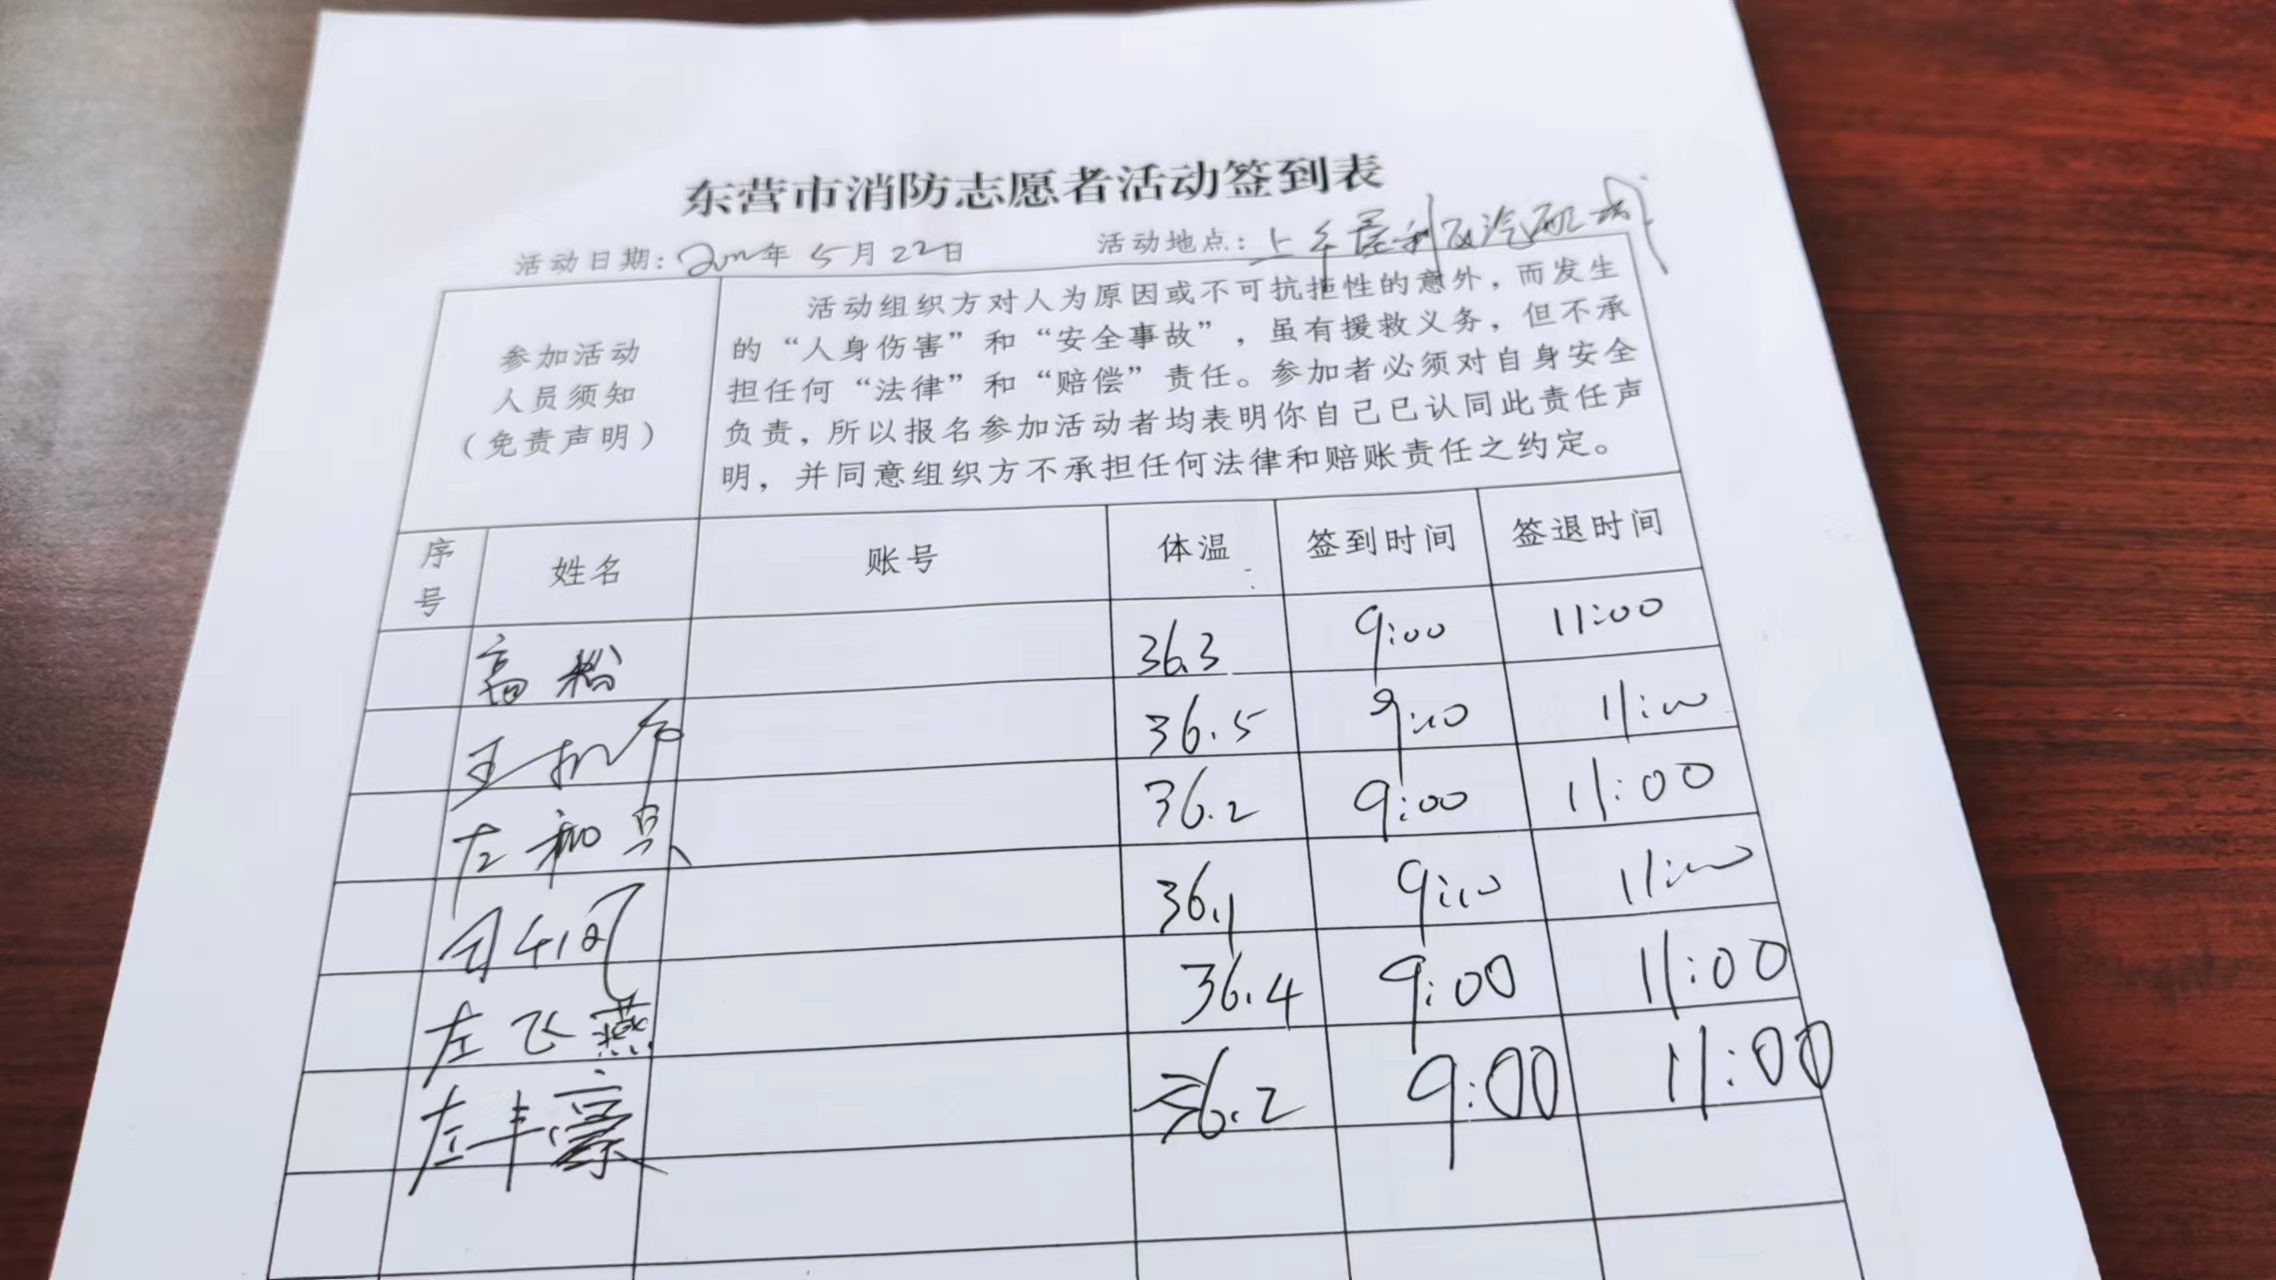 东营市消防志愿者活动签到表
活动日期：年 5月22日 活动地点：上午垦利区汽配城
参加活动
人员须知
（免责声明）
活动组织方对人为原因或不可抗拒性的意外，而发生
的“人身伤害”和“安全事故”，虽有援救义务，但不承
担任何“法律”和“赔偿”责任。参加者必须对自身安全
负责，所以报名参加活动者均表明你自己已认同此责任声
明，并同意组织方不承担任何法律和赔账责任之约定。
序号 姓名 账号 体温 签到时间 签退时间
高 36.3 9:00 11:00
王 36.5 9:00 11:00
左和 36.2 9:00 11:00
36.1 9:00 11:00
左飞燕 36.4 9:00 11:00
左丰豪 36.2 9:00 11:00